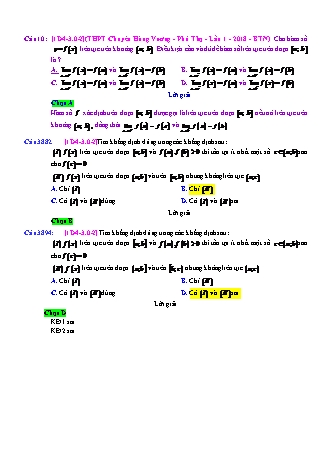 Câu 10: [1D4-3.0-2] (THPT Chuyên Hùng Vương - Phú Thọ - Lần 1 - 2018 - BTN) Cho hàm số
y=f(x) liên tục trên khoảng (a;b). Điều kiện cần và đủ để hàm số liên tục trên đoạn [a;b]
là ?
A. lim f(x)=f(a) và lim f(x)=f(b) B. lim f(x)=f(a) và lim f(x)=f(b)
C. lim f(x)=f(a) và lim f(x)=f(b) D. lim f(x)=f(a) và lim f(x)=f(b)
Lời giải
Chọn A
Hàm số f xác định trên đoạn [a;b] được gọi là liên tục trên đoạn [a;b] nếu nó liên tục trên
khoảng (a;b), đồng thời lim f(x)=f(a) và lim f(x)=f(b)
Câu 3882. [1D4-3.0-2] Tìm khẳng định đúng trong các khẳng định sau:
(I) f(x) liên tục trên đoạn [a;b] và f(a).f(b)>0 thì tồn tại ít nhất một số c∈(a;b) sao
cho f(c)=0
(II) f(x) liên tục trên đoạn (a;b] và trên (b;c) nhưng không liên tục (a;c)
A. Chỉ (I) B. Chỉ (II)
C. Cả (I) và (II) đúng D. Cả (I) và (II) sai
Lời giải
Chọn B
Câu 3894: [1D4-3.0-2] Tìm khẳng định đúng trong các khẳng định sau:
(I) f(x) liên tục trên đoạn [a;b] và f(a).f(b)>0 thì tồn tại ít nhất một số c∈(a;b) sao
cho f(c)=0
(II) f(x) liên tục trên đoạn (a;b] và trên [b;c) nhưng không liên tục (a;c)
A. Chỉ (I) B. Chỉ (II)
C. Cả (I) và (II) đúng D. Cả (I) và (II) sai
Lời giải
Chọn D
KĐ 1 sai
KĐ 2 sai